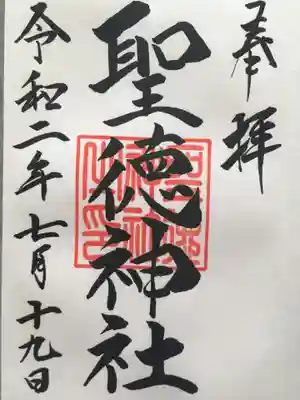 奉拝
聖徳神社
令和二年七月十九日